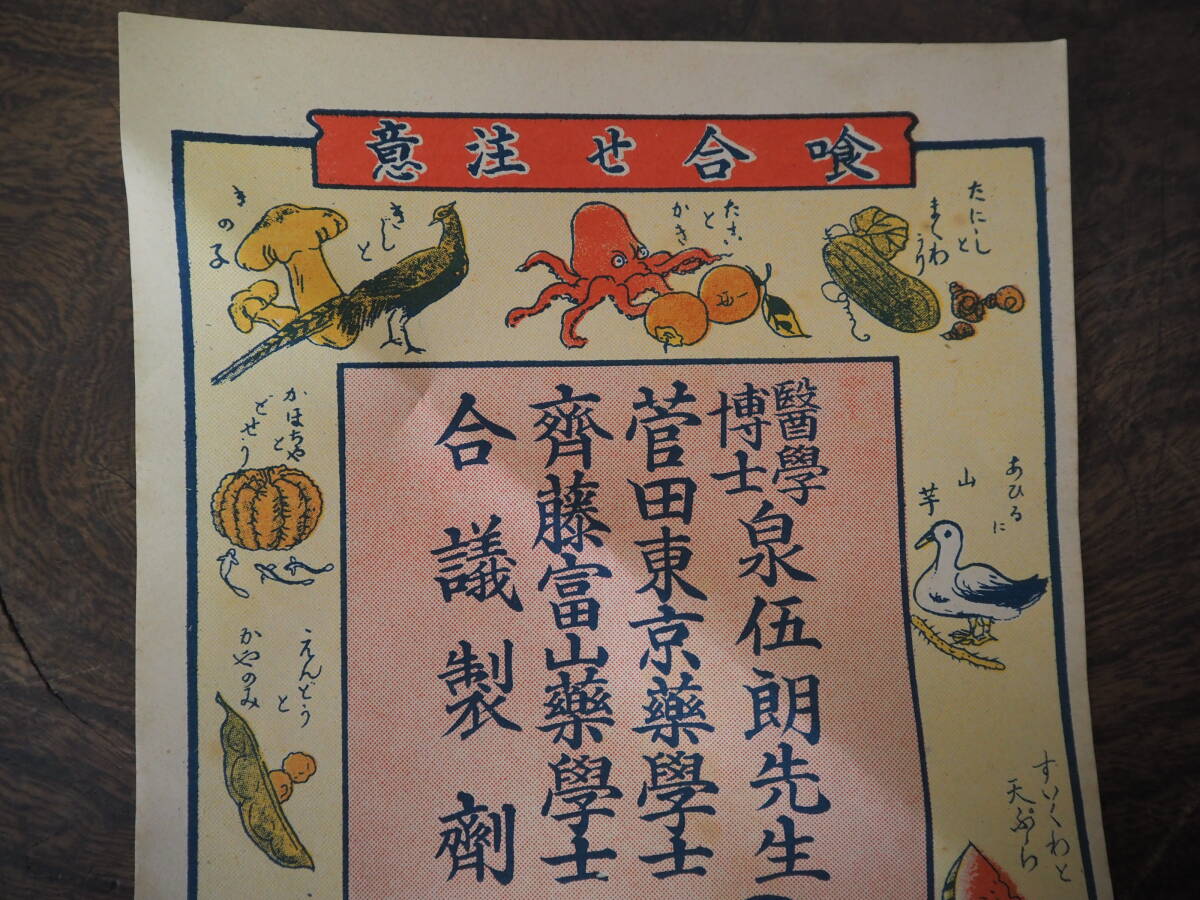 喰合せ注意
たにしと
まくわうり
たこと
かき
きじと
きの子
醫學博士泉伍朗先生
菅田東京藥學士
齊藤富山藥學士
合議製劑
あひるに
山芋
すいくわと
天ぷら
かぼちやと
どせう
えんどうと
かやのみ